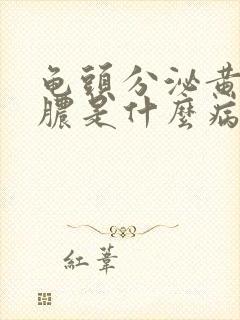 龟頭分泌黄
膿是什麼病
紅葦